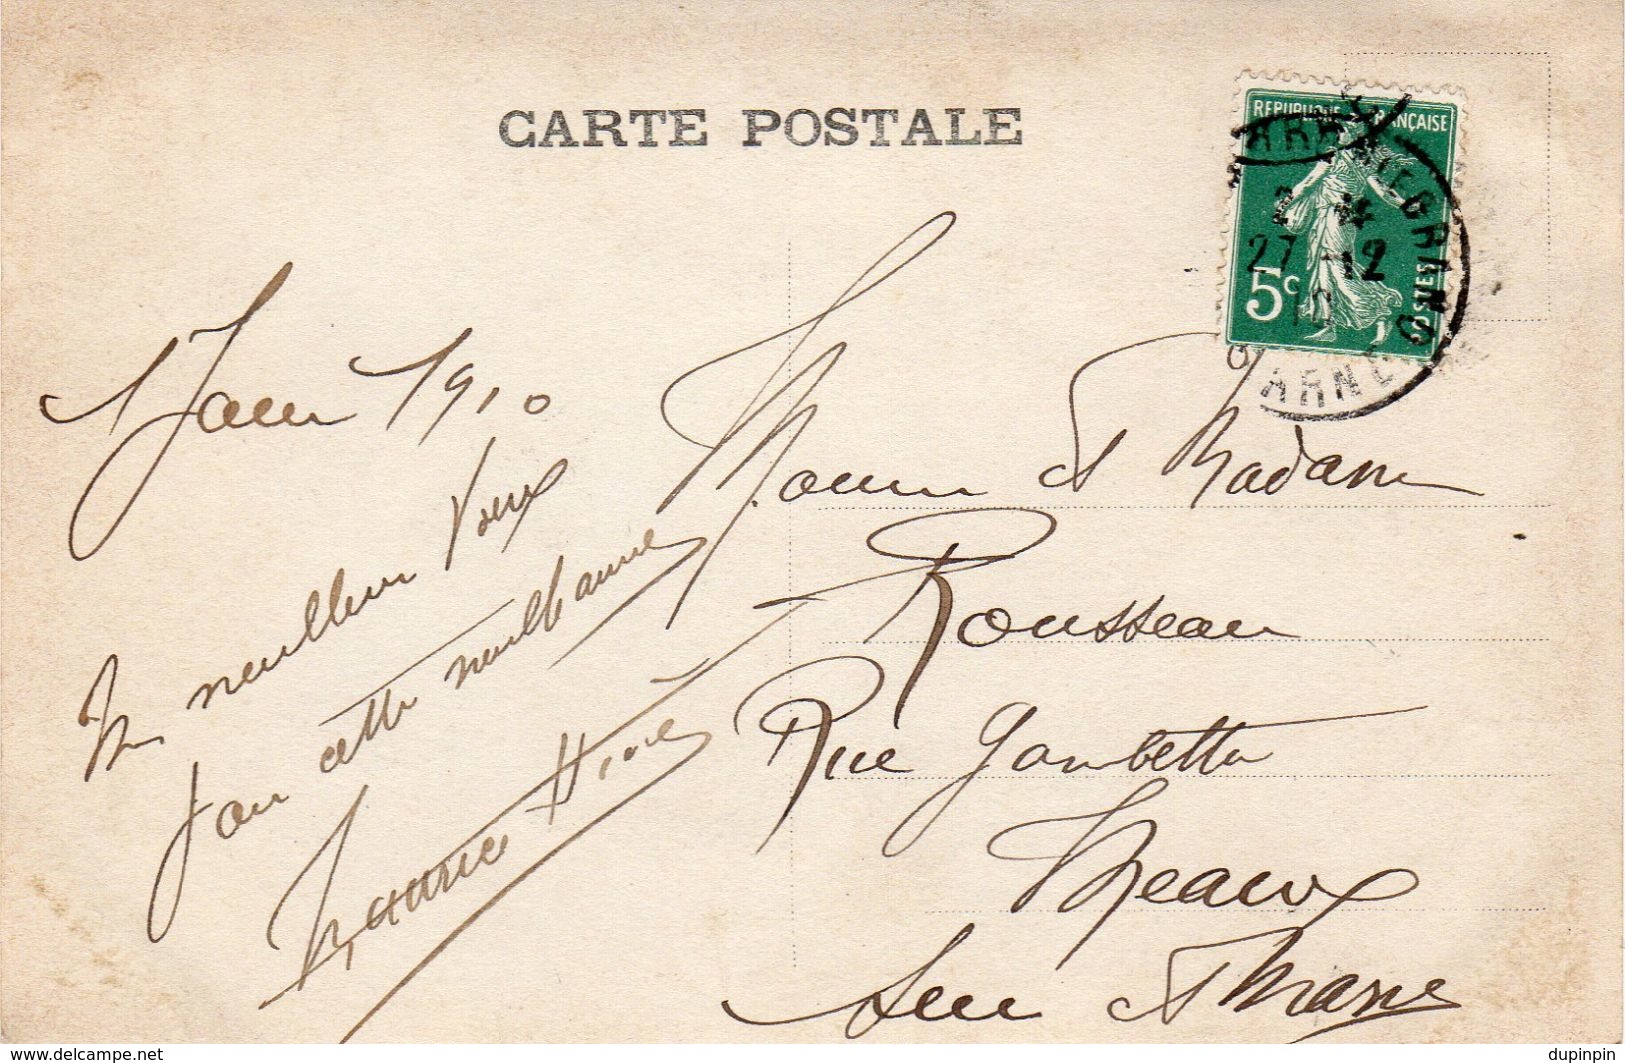 CARTE POSTALE
REPUBLIQUE FRANÇAISE
27 12
5c POSTES
1 Janv 1910
meilleurs Voeux
pour cette nouvelle année
Maurice
Monsieur et Madame
Rousseau
Rue Gambetta
Meaux
Seine et Marne
www.delcampe.net
dupinpin